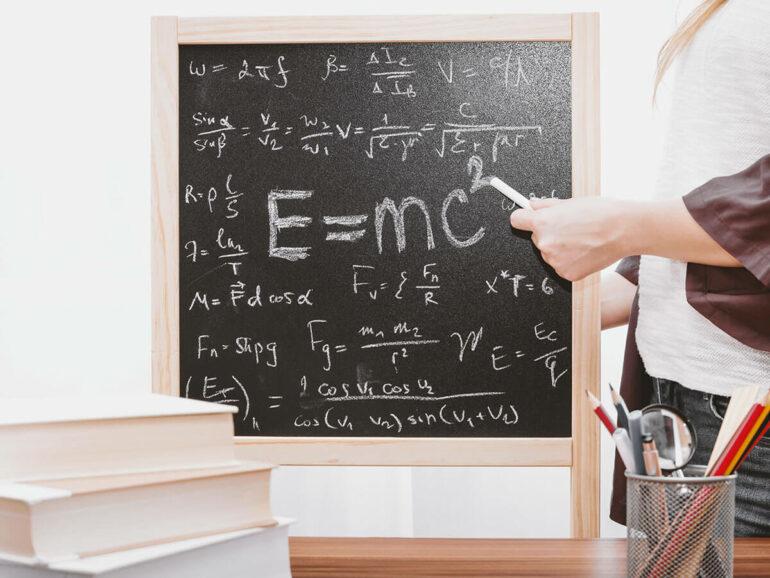 ω = 2πf β = ΔI_c / ΔI_B V = c/λ
sinα / sinβ = v₁ / v₂ = w₂ / w₁ V = 1 / √(ε · μ) = c / √(εr μr)
R = ρ l / S
E = mc²
λ = ln₂ / T
M = F⃗ d cosα F_v = { F_n / R x*T = 6
F_n = Shρg F_g = m₁ m₂ / r² M E = E_c / q
1 cosv₁ cosv₂
cos(v₁ v₂) sin(v₁+v₂)